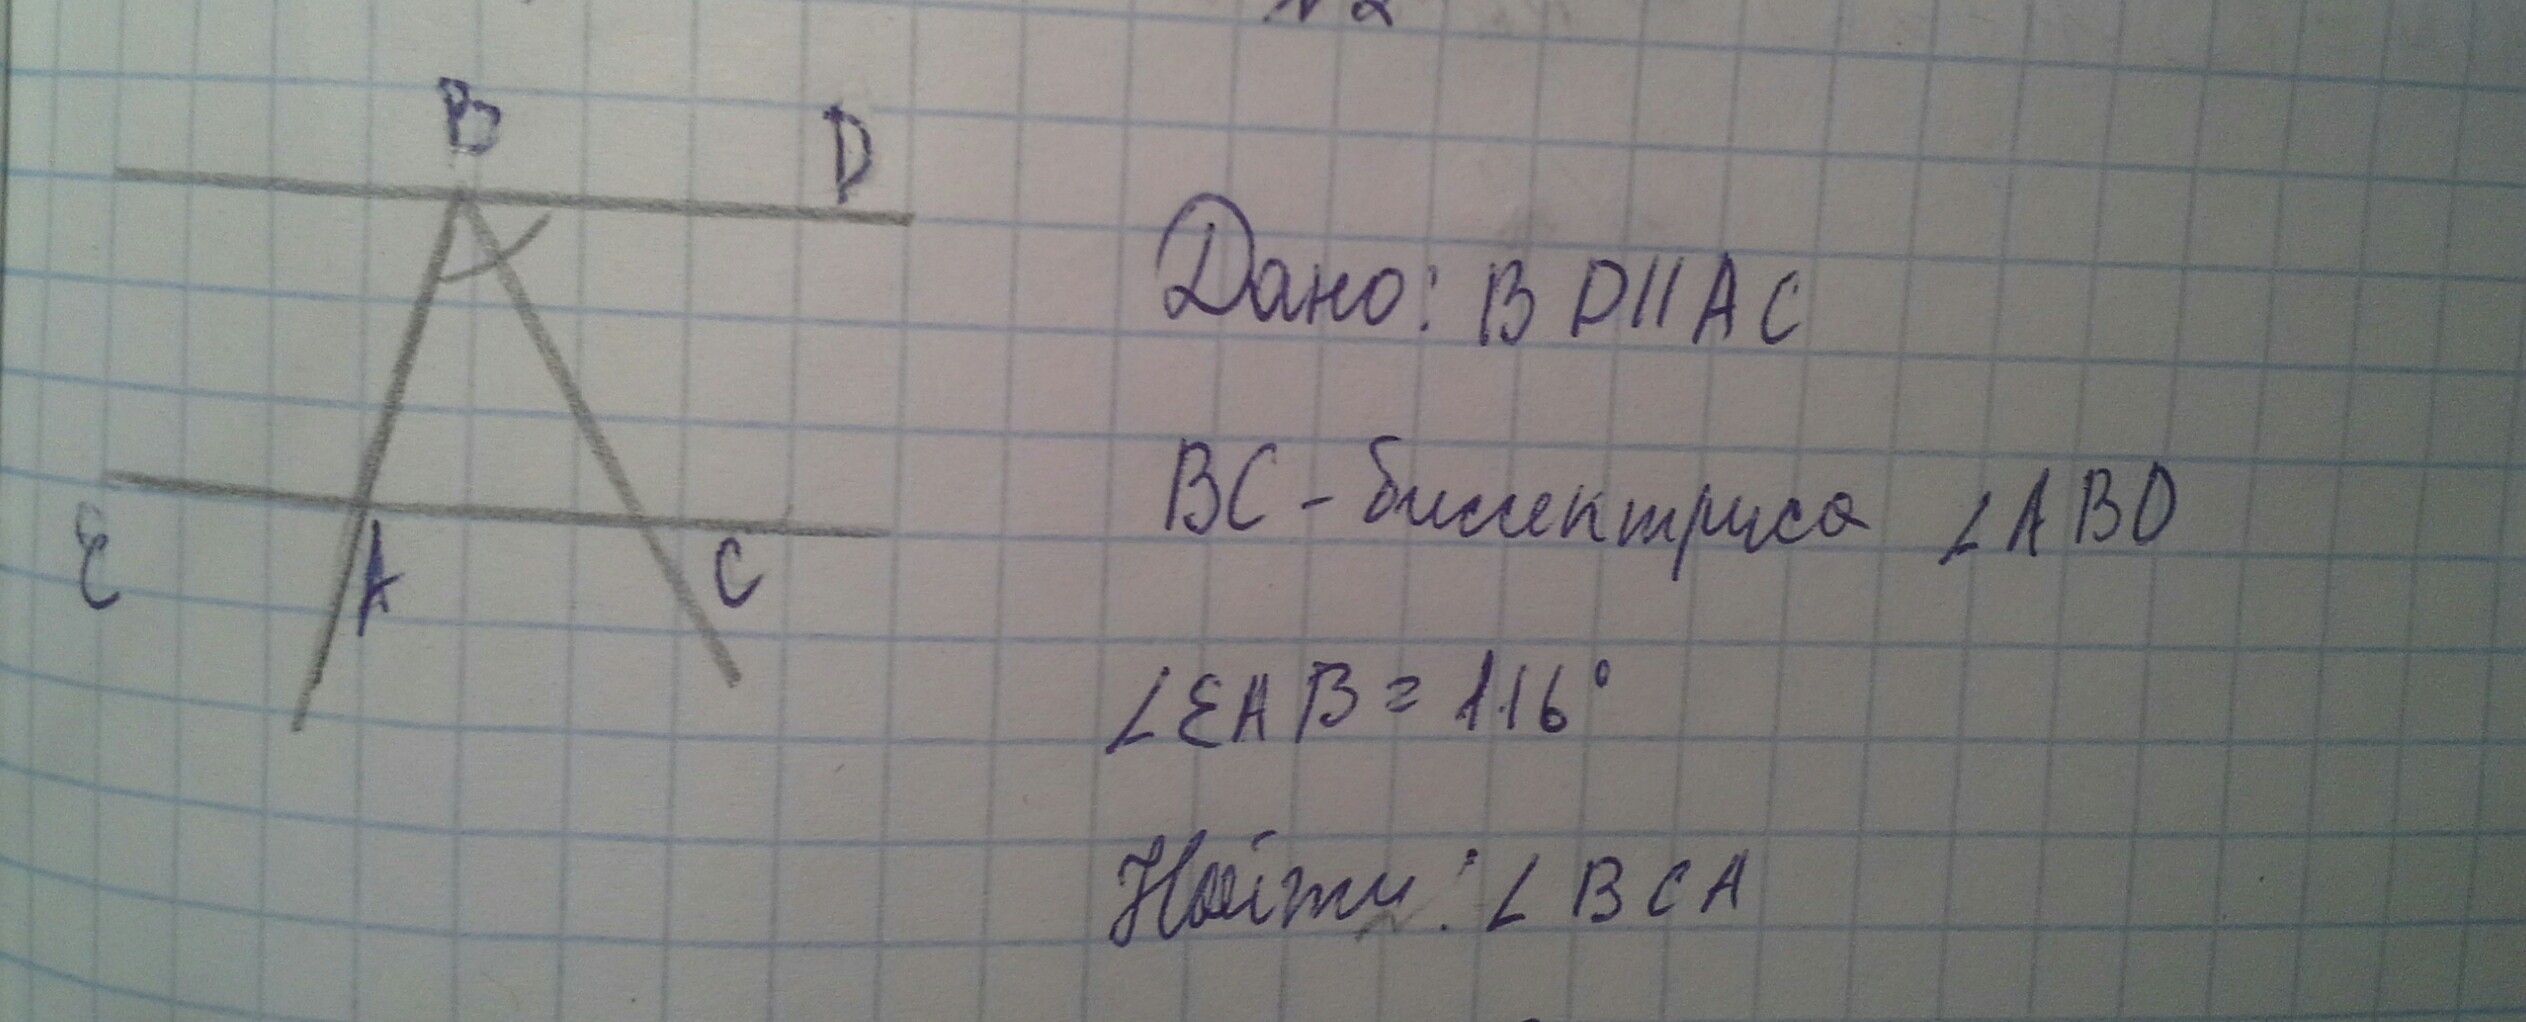 №2
B
D
Дано: BD || AC
BC - биссектриса ∠ABD
E
A
C
∠EAB = 116°
Найти: ∠BCA